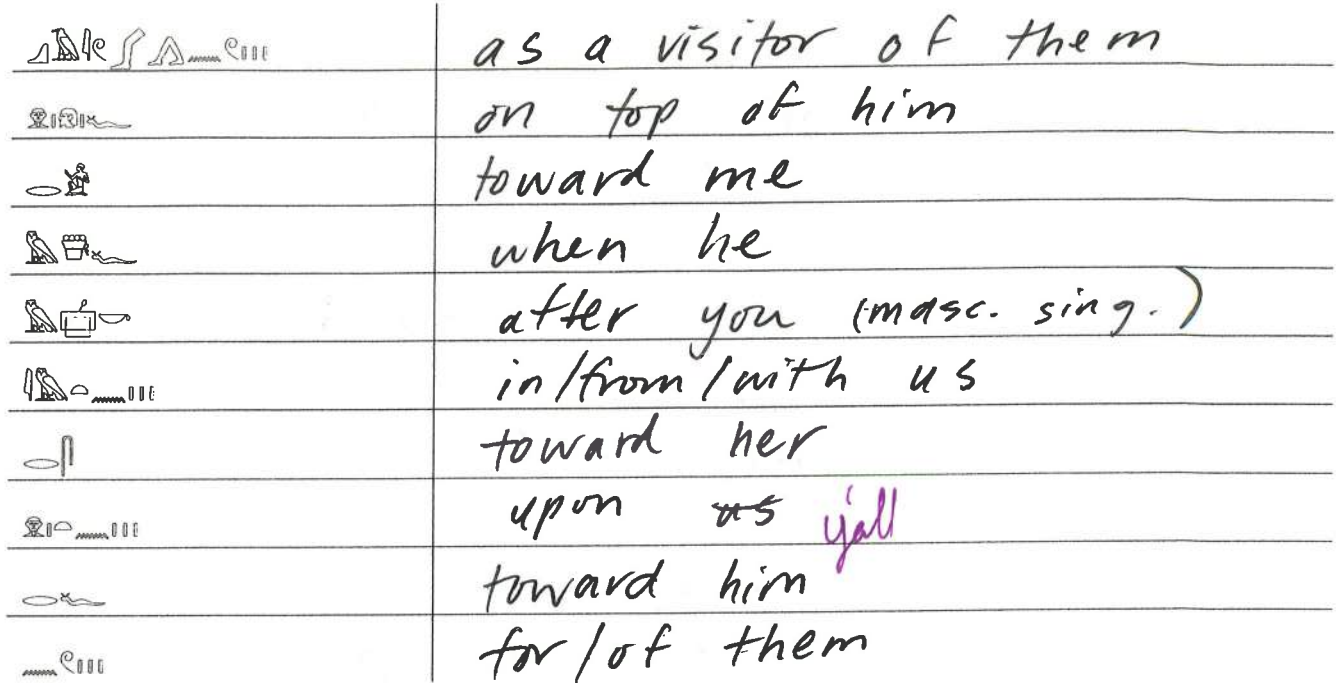 𓂻𓈖𓏲𓏥 as a visitor of them
𓁷𓏤𓁶𓏤𓆑 on top of him
𓂋𓀀 toward me
𓅓𓏃𓆑 when he
𓅓𓎡 after you (masc. sing.)
𓇋𓅓𓏏𓈖𓏥 in/from/with us
𓂋𓋴 toward her
𓁷𓏤𓏏𓈖𓏥 upon us y'all
𓂋𓆑 toward him
𓈖𓏲𓏥 for/of them